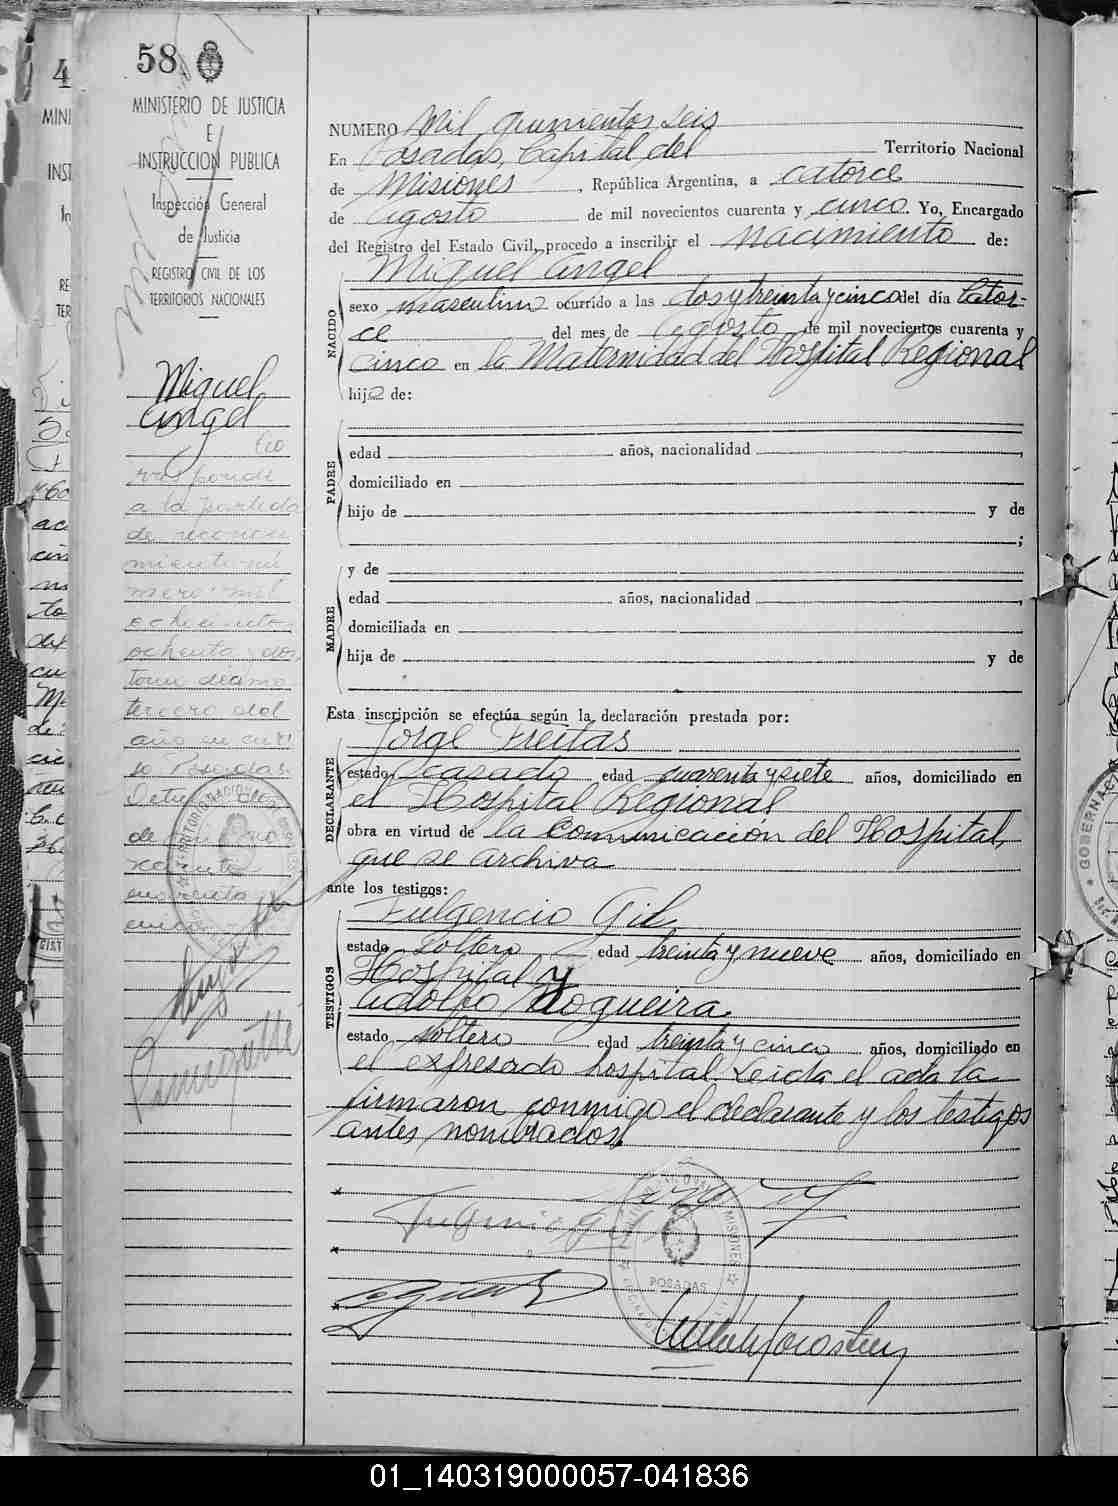 58
MINISTERIO DE JUSTICIA
E
INSTRUCCION PUBLICA
Inspección General
de Justicia
REGISTRO CIVIL DE LOS
TERRITORIOS NACIONALES
Miguel
Angel
Co
rresponde
a la partida
de reconoci
miento nú
mero: mil
ochocientos
ochenta y dos,
tomo décimo
tercero del
año en cur
so Posadas.
de mil no
cuarenta y
cinco
NUMERO Mil quinientos seis
En Posadas, Capital del Territorio Nacional
de Misiones, República Argentina, a catorce
de agosto de mil novecientos cuarenta y cinco. Yo, Encargado
del Registro del Estado Civil, procedo a inscribir el nacimiento de:
Miguel Angel
NACIDO
sexo masculino ocurrido a las dos y treinta y cinco del día cator-
ce del mes de agosto de mil novecientos cuarenta y
cinco en la Maternidad del Hospital Regional
hijo de:
PADRE
edad años, nacionalidad ,
domiciliado en
hijo de y de
;
y de
MADRE
edad años, nacionalidad ,
domiciliada en
hija de y de
Esta inscripción se efectúa según la declaración prestada por:
Jorge Freitas
DECLARANTE
estado casado edad cuarenta y siete años, domiciliado en
el Hospital Regional
obra en virtud de la comunicación del Hospital,
que se archiva
ante los testigos:
Fulgencio Gil
TESTIGOS
estado soltero edad treinta y nueve años, domiciliado en
Hospital y
Adolfo Nogueira
estado soltero edad treinta y cinco años, domiciliado en
el expresado hospital. Leída el acta la
firmaron conmigo el declarante y los testigos
antes nombrados.
Fulgencio Gil
MISIONES
POSADAS
01_140319000057-041836